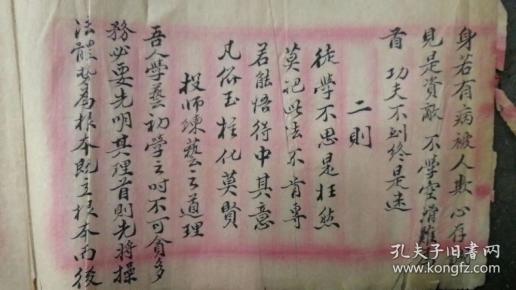 身若有病被人欺心存
見是資敵不學空滑雕
首功夫不到終是迷
二則
徒學不思是枉然
莫把此法不肯專
若能悟得中其意
凡俗玉柱化莫賢
投師練藝之道理
吾人學藝初學之時不可貪多
務必要先明其理首則先將操
法體勢為根本既立根本而後
孔夫子旧书网
www.kongfz.com